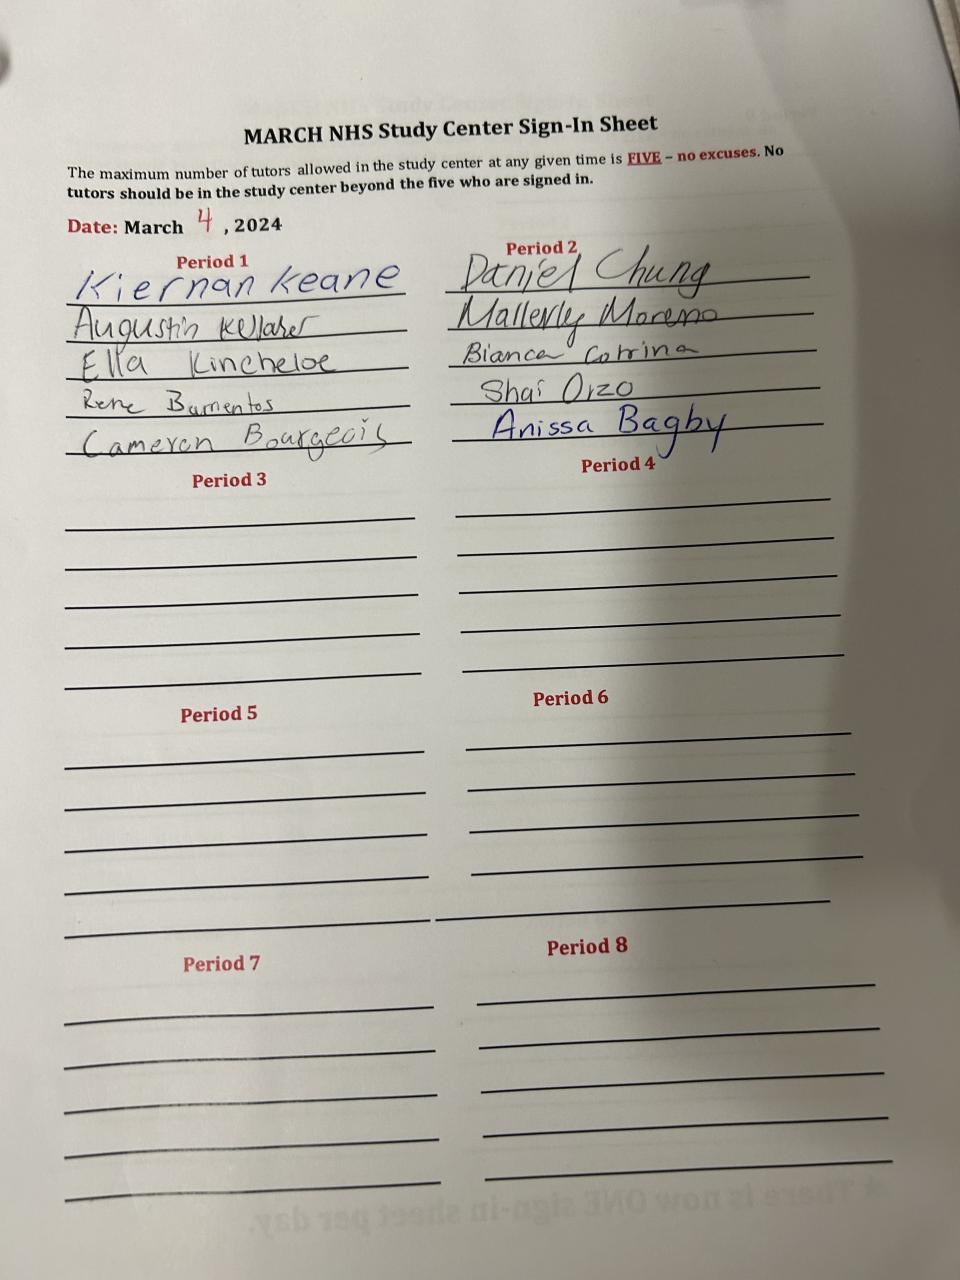 MARCH NHS Study Center Sign-In Sheet
The maximum number of tutors allowed in the study center at any given time is FIVE – no excuses. No
tutors should be in the study center beyond the five who are signed in.
Date: March 4, 2024
Period 1
Kiernan Keane
Augustin
Ella Kincheloe
Rene
Cameron Bourgeois
Period 2
Daniel Chung
Mallerly Moreno
Bianca Cotrina
Shai Orzo
Anissa Bagby
Period 3
Period 4
Period 5
Period 6
Period 7
Period 8
* There is now ONE sign-in sheet per day.